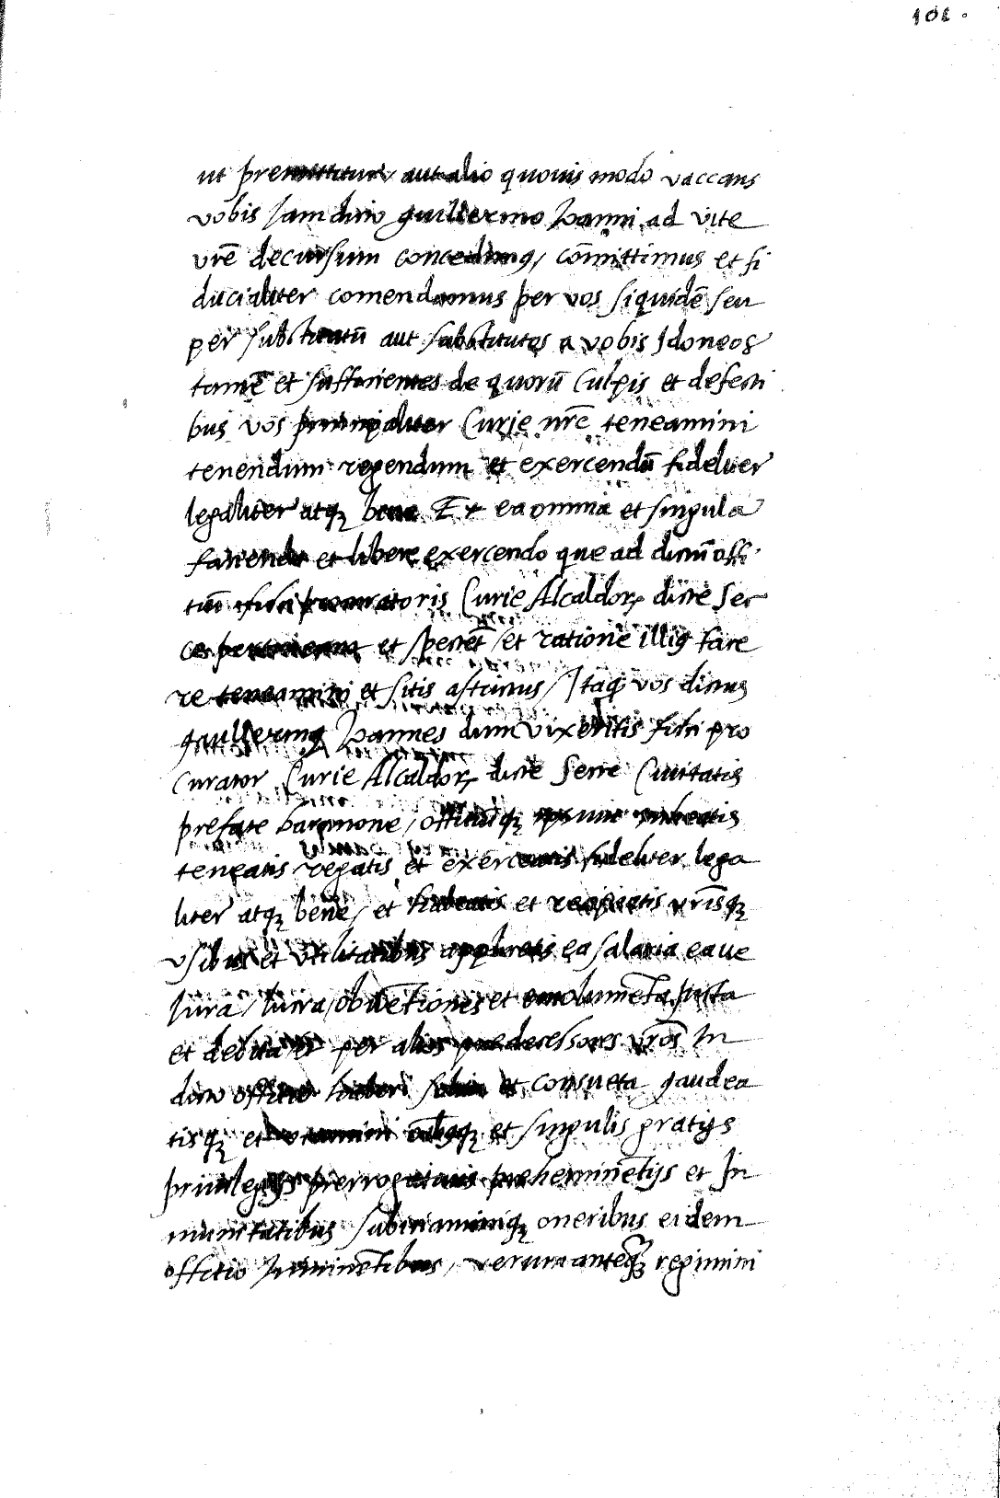 101.
ut premittitur aut alio quouis modo vaccans
vobis Jam dicto guillermo Joanni ad vite
vr̃e decursum concedimꝰ / com̃ittimus et fi
ducialiter comendamus per vos siquidẽ seu
per substitutũ aut substitutos a vobis Jdoneos
tamẽ et sufficientes de quorũ Culpis et defecti
bus vos principaliter Curie nr̃e teneamini
tenendum regendum et exercendũ fideliter
legaliter atqꝫ bene Et ea omnia et singula
faciendo et libere exercendo que ad dictũ offi
tiũ fisci procuratoris Curie Alcaldorꝝ dicte Ser
ce pertineant et spectẽt et ratione illiꝰ face
re teneamini et sitis astrictus / Itaqꝫ vos dictus
guillermꝰ Joannes dum vixeritis fisci pro
curator Curie Alcaldorꝝ dicte Serre Ciuitatis
prefate barcinone / officiũqꝫ
teneatis regatis et exerceatis fideliter lega
liter atqꝫ bene / et habeatis et recipiatis vr̃isqꝫ
vsibus et vtilitatibus applicetis ea salaria eaue
Jura / lucra / obuẽtiones et emolumẽta Justa
et debita et per alios predecessores vr̃os In
dicto officio haberi solita et consueta gaudea
tisqꝫ et vtamini oĩbusqꝫ et singulis gratijs
priuilegijs prerrogatiuis preheminẽtijs et In
munitatibus subeciamiqꝫ oneribus eidem
offitio Jnminẽtibus / verum anteqꝫ regimini